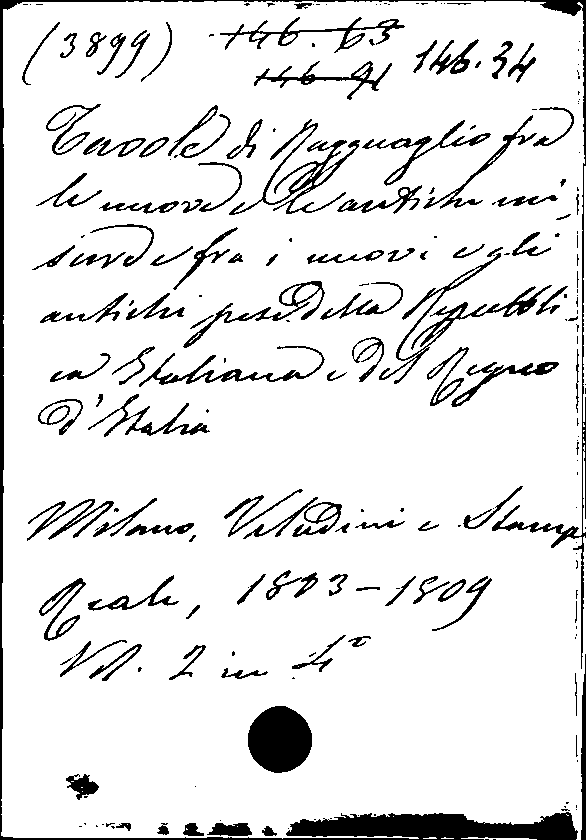 (3899) 146.63
146 91 146.34
Tavole di Ragguaglio fra
le nuove e le antiche mi-
sure e fra i nuovi e gli
antichi pesi della Repubbli-
ca Italiana e del Regno
d'Italia
Milano, Veladini e Stamp.
Reale, 1803-1809
Vol. 2 in 4°